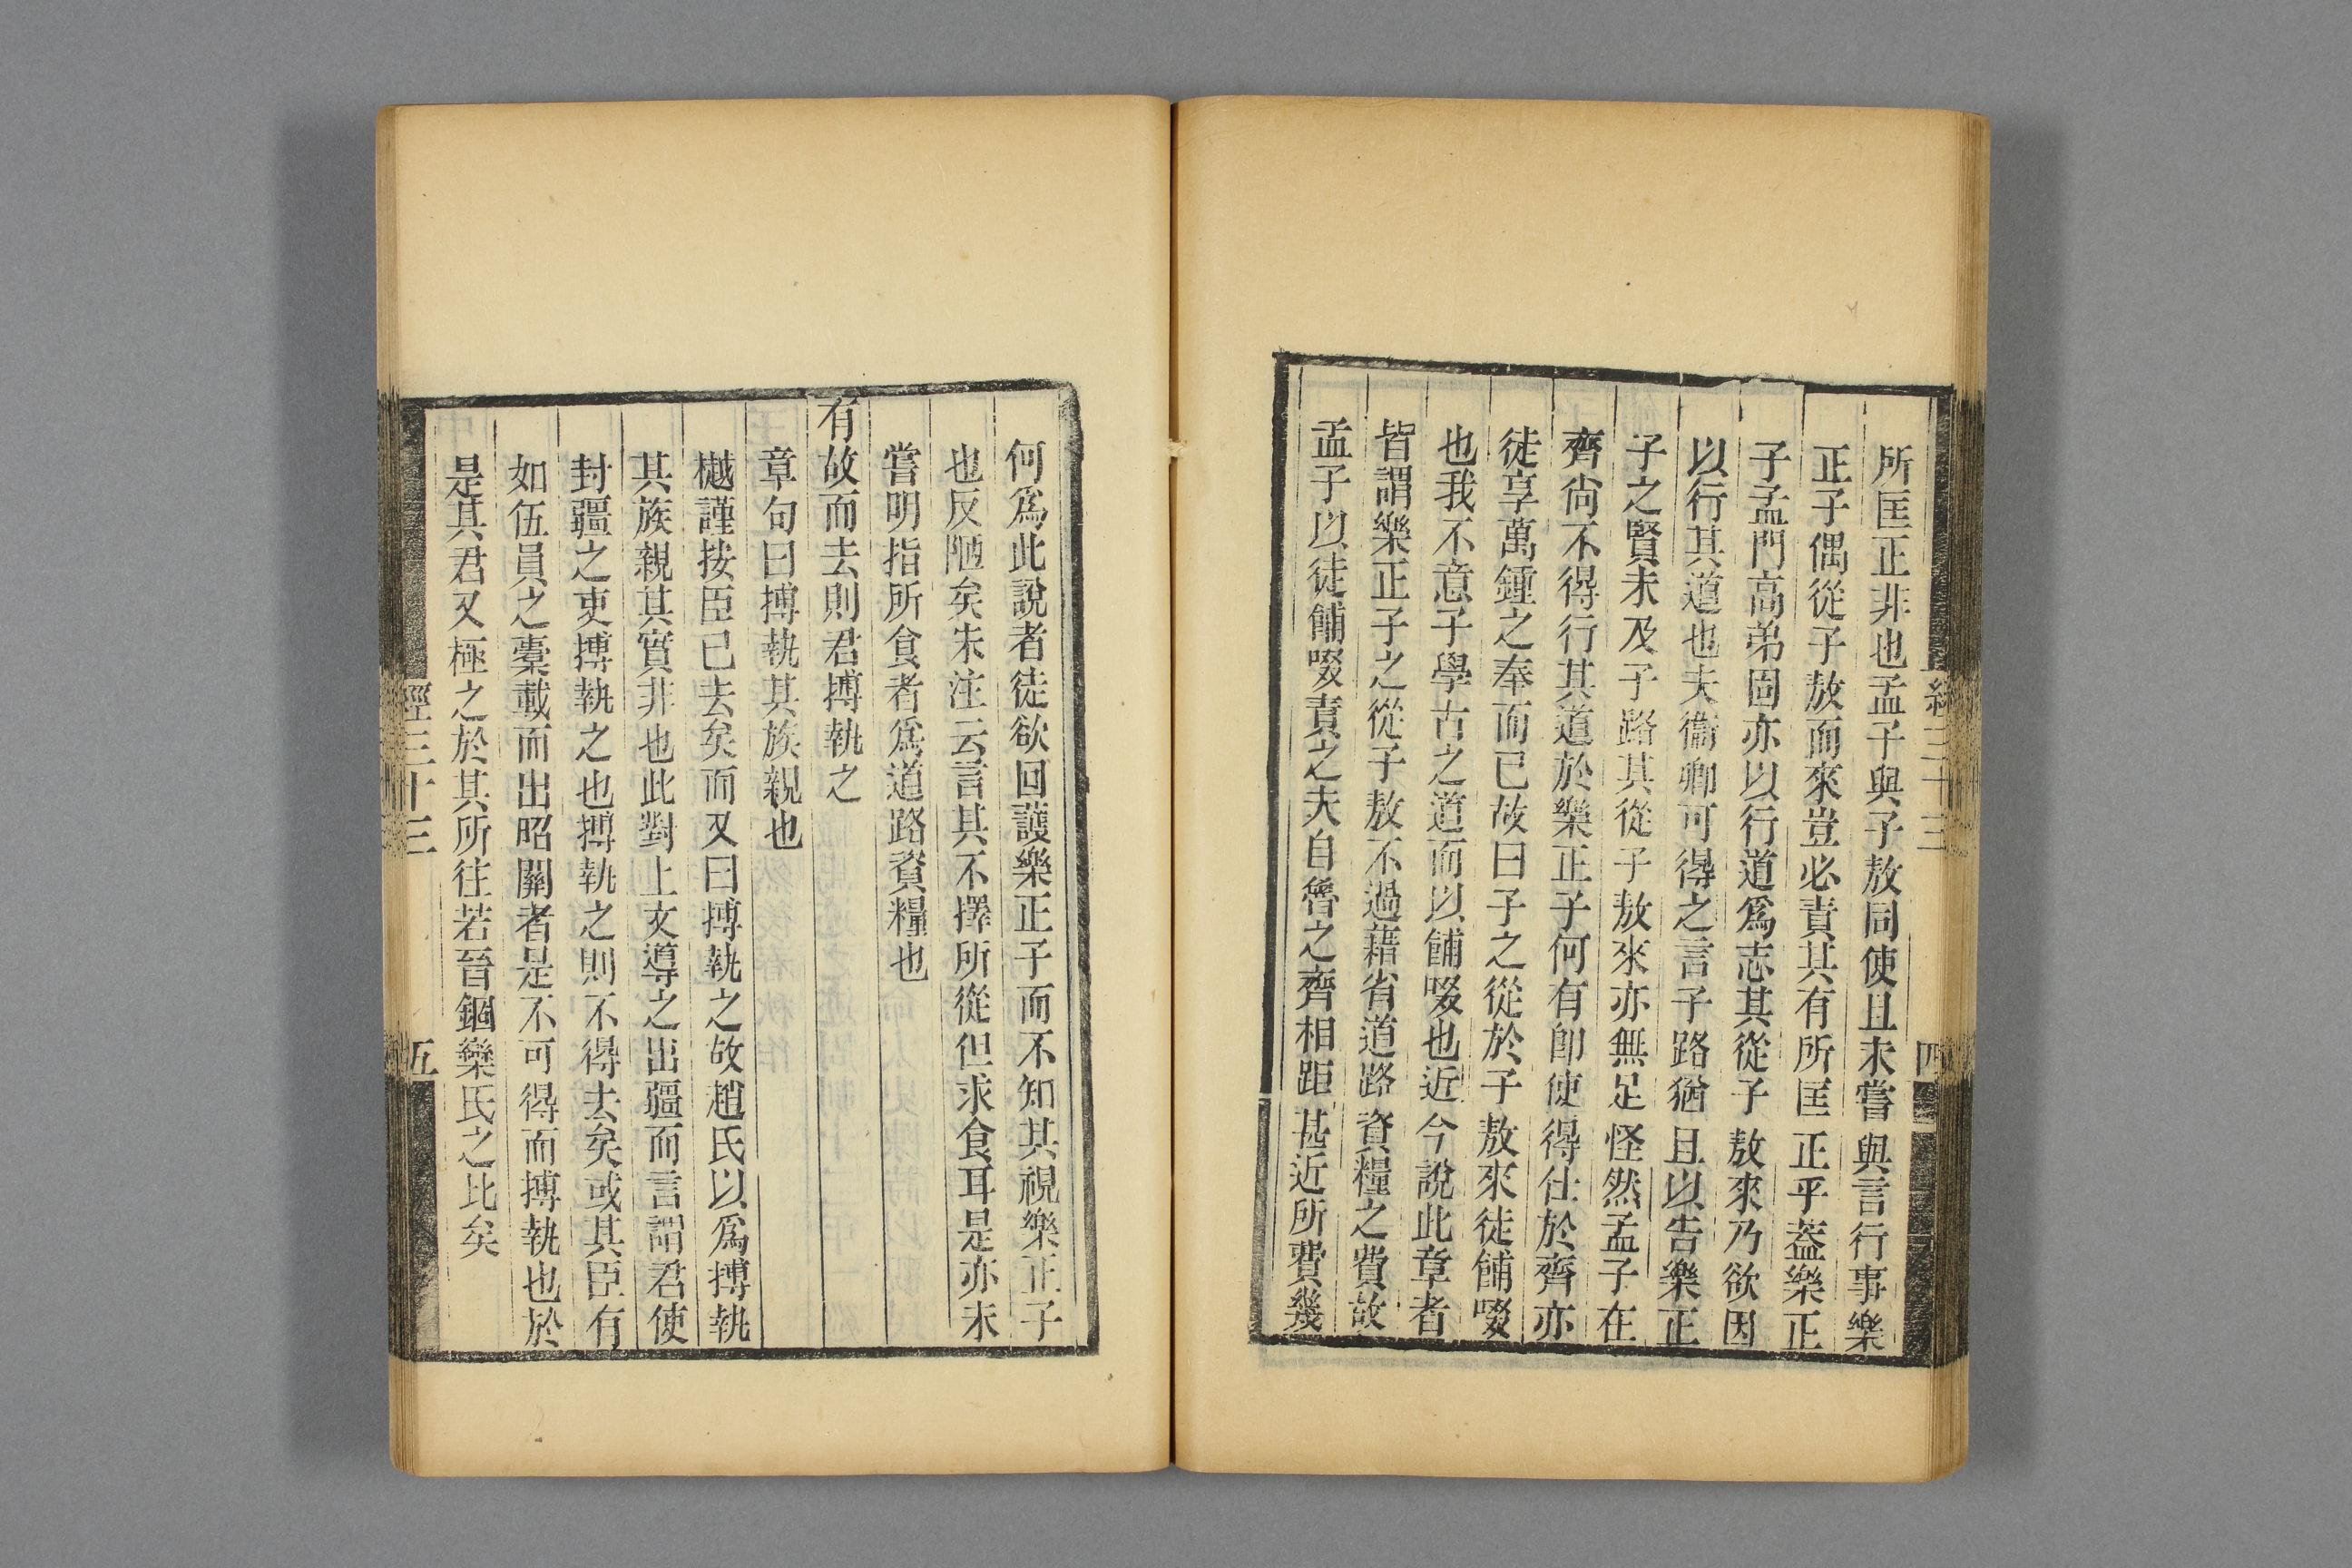 所匡正非也孟子與子敖同使且未嘗與言行事樂
正子偶從子敖而來豈必責其有所匡正乎葢樂正
子孟門高弟固亦以行道爲志其從子敖來乃欲因
以行其道也夫衞卿可得之言子路猶且以告樂正
子之賢未及子路其從子敖來亦無足怪然孟子在
齊尙不得行其道於樂正子何有卽使得仕於齊亦
徒享萬鍾之奉而已故曰子之從於子敖來徒餔啜
也我不意子學古之道而以餔啜也近今說此章者
皆謂樂正子之從子敖不過藉省道路資糧之費故
孟子以徒餔啜責之夫自魯之齊相距甚近所費幾
經三十三
四
何爲此說者徒欲回護樂正子而不知其視樂正子
也反陋矣朱注云言其不擇所從但求食耳是亦未
嘗明指所食者爲道路資糧也
有故而去則君搏執之
章句曰搏執其族親也
樾謹按臣已去矣而又曰搏執之故趙氏以爲搏執
其族親其實非也此對上文導之出疆而言謂君使
封疆之吏搏執之也搏執之則不得去矣或其臣有
如伍員之橐載而出昭關者是不可得而搏執也於
是其君又極之於其所往若晉錮欒氏之比矣
經三十三
五